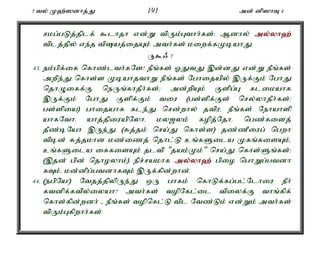 5 வல் முஹ்ஸனாத்து 191 அன் னிஸாவு 4
சமப்படுத்திடக் கூடாதா என்று விரும்புவார்கள்; ஆனால் அல்லாஹ்
விடத்தில் எந்த விஷயத்தையும் அவர்கள் மறைக்கமுடியாது.
ருகூஃ 7
43. நம்பிக்கை கொண்டவர்களே! நீங்கள் ஓதுவது இன்னது என்று நீங்கள்
அறிந்து கொள்ள முடியாதவாறு நீங்கள் போதையில் இருக்கும் போது
தொழுகைக்கு நெருங்காதீர்கள்; அன்றியும் குளிப்பு கடமையாக
இருக்கும் போது குளிக்கும் வரை (பள்ளிக்குள் செல்லாதீர்கள்;
பள்ளியை) பாதையாக கடந்து சென்றால் தவிர, நீங்கள் நோயாளி
யாகவோ, யாத்திரையிலோ, மலஜலம் கழித்தோ, பெண்களைத்
தீண்டியோ இருந்து (சுத்தம் செய்து கொள்ள) தண்ணீரைப் பெறா
விடின் சுத்தமான மண்ணைத் தொட்டு உங்களுடைய முகங்களையும்,
உங்களுடைய கைகளையும் தடவி "தயம்மும்" செய்து கொள்ளுங்கள்;
(இதன் பின் தொழலாம்) நிச்சயமாக அல்லாஹ் பிழை பொறுப்பவனா
கவும், மன்னிப்பவனாகவும் இருக்கின்றான்.
44. (நபியே!) வேதத்திலிருந்து ஒரு பாகம் கொடுக்கப்பட்டோரை நீர்
கவனிக்கவில்லையா? அவர்கள் வழிகேட்டை விலைக்கு வாங்கிக்
கொள்கின்றனர் - நீங்கள் வழிகெட்டு விட வேண்டும் என்றும் அவர்கள்
விரும்புகிறார்கள்.